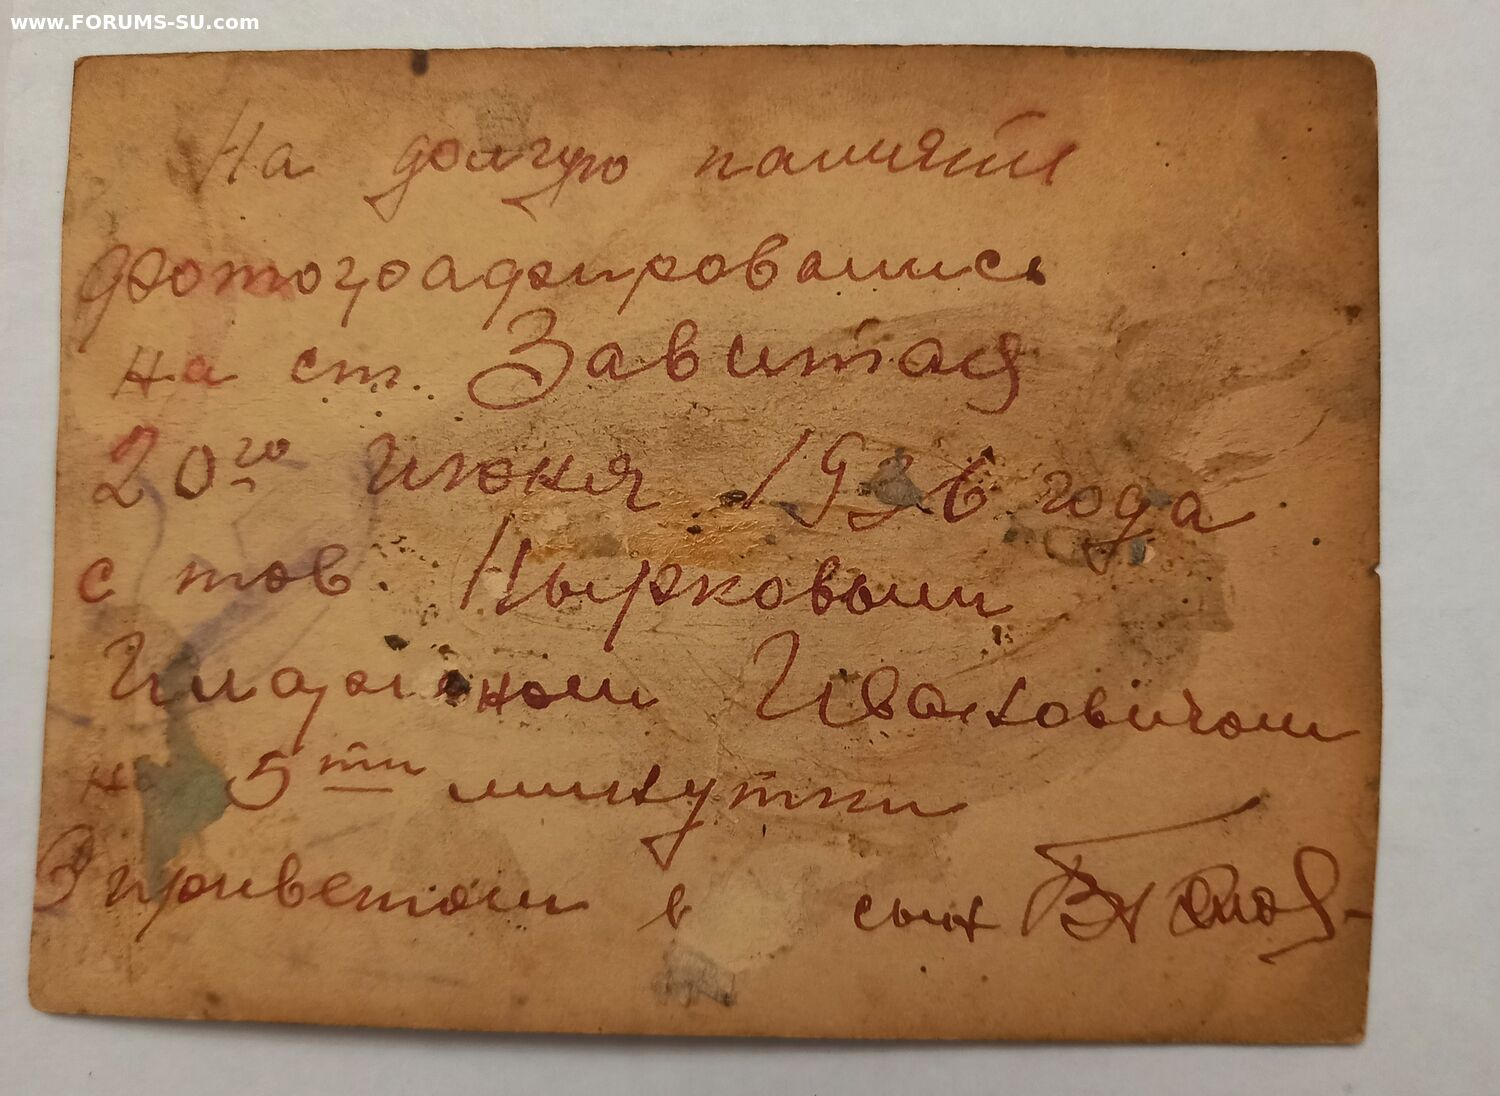 www.FORUMS-SU.com
На долгую память
фотографировались
на ст. Завитая
20го Июня 1936 года
с тов. Нырковым
Илларионом Ивановичом
на 5ти минутки
С приветом в сын